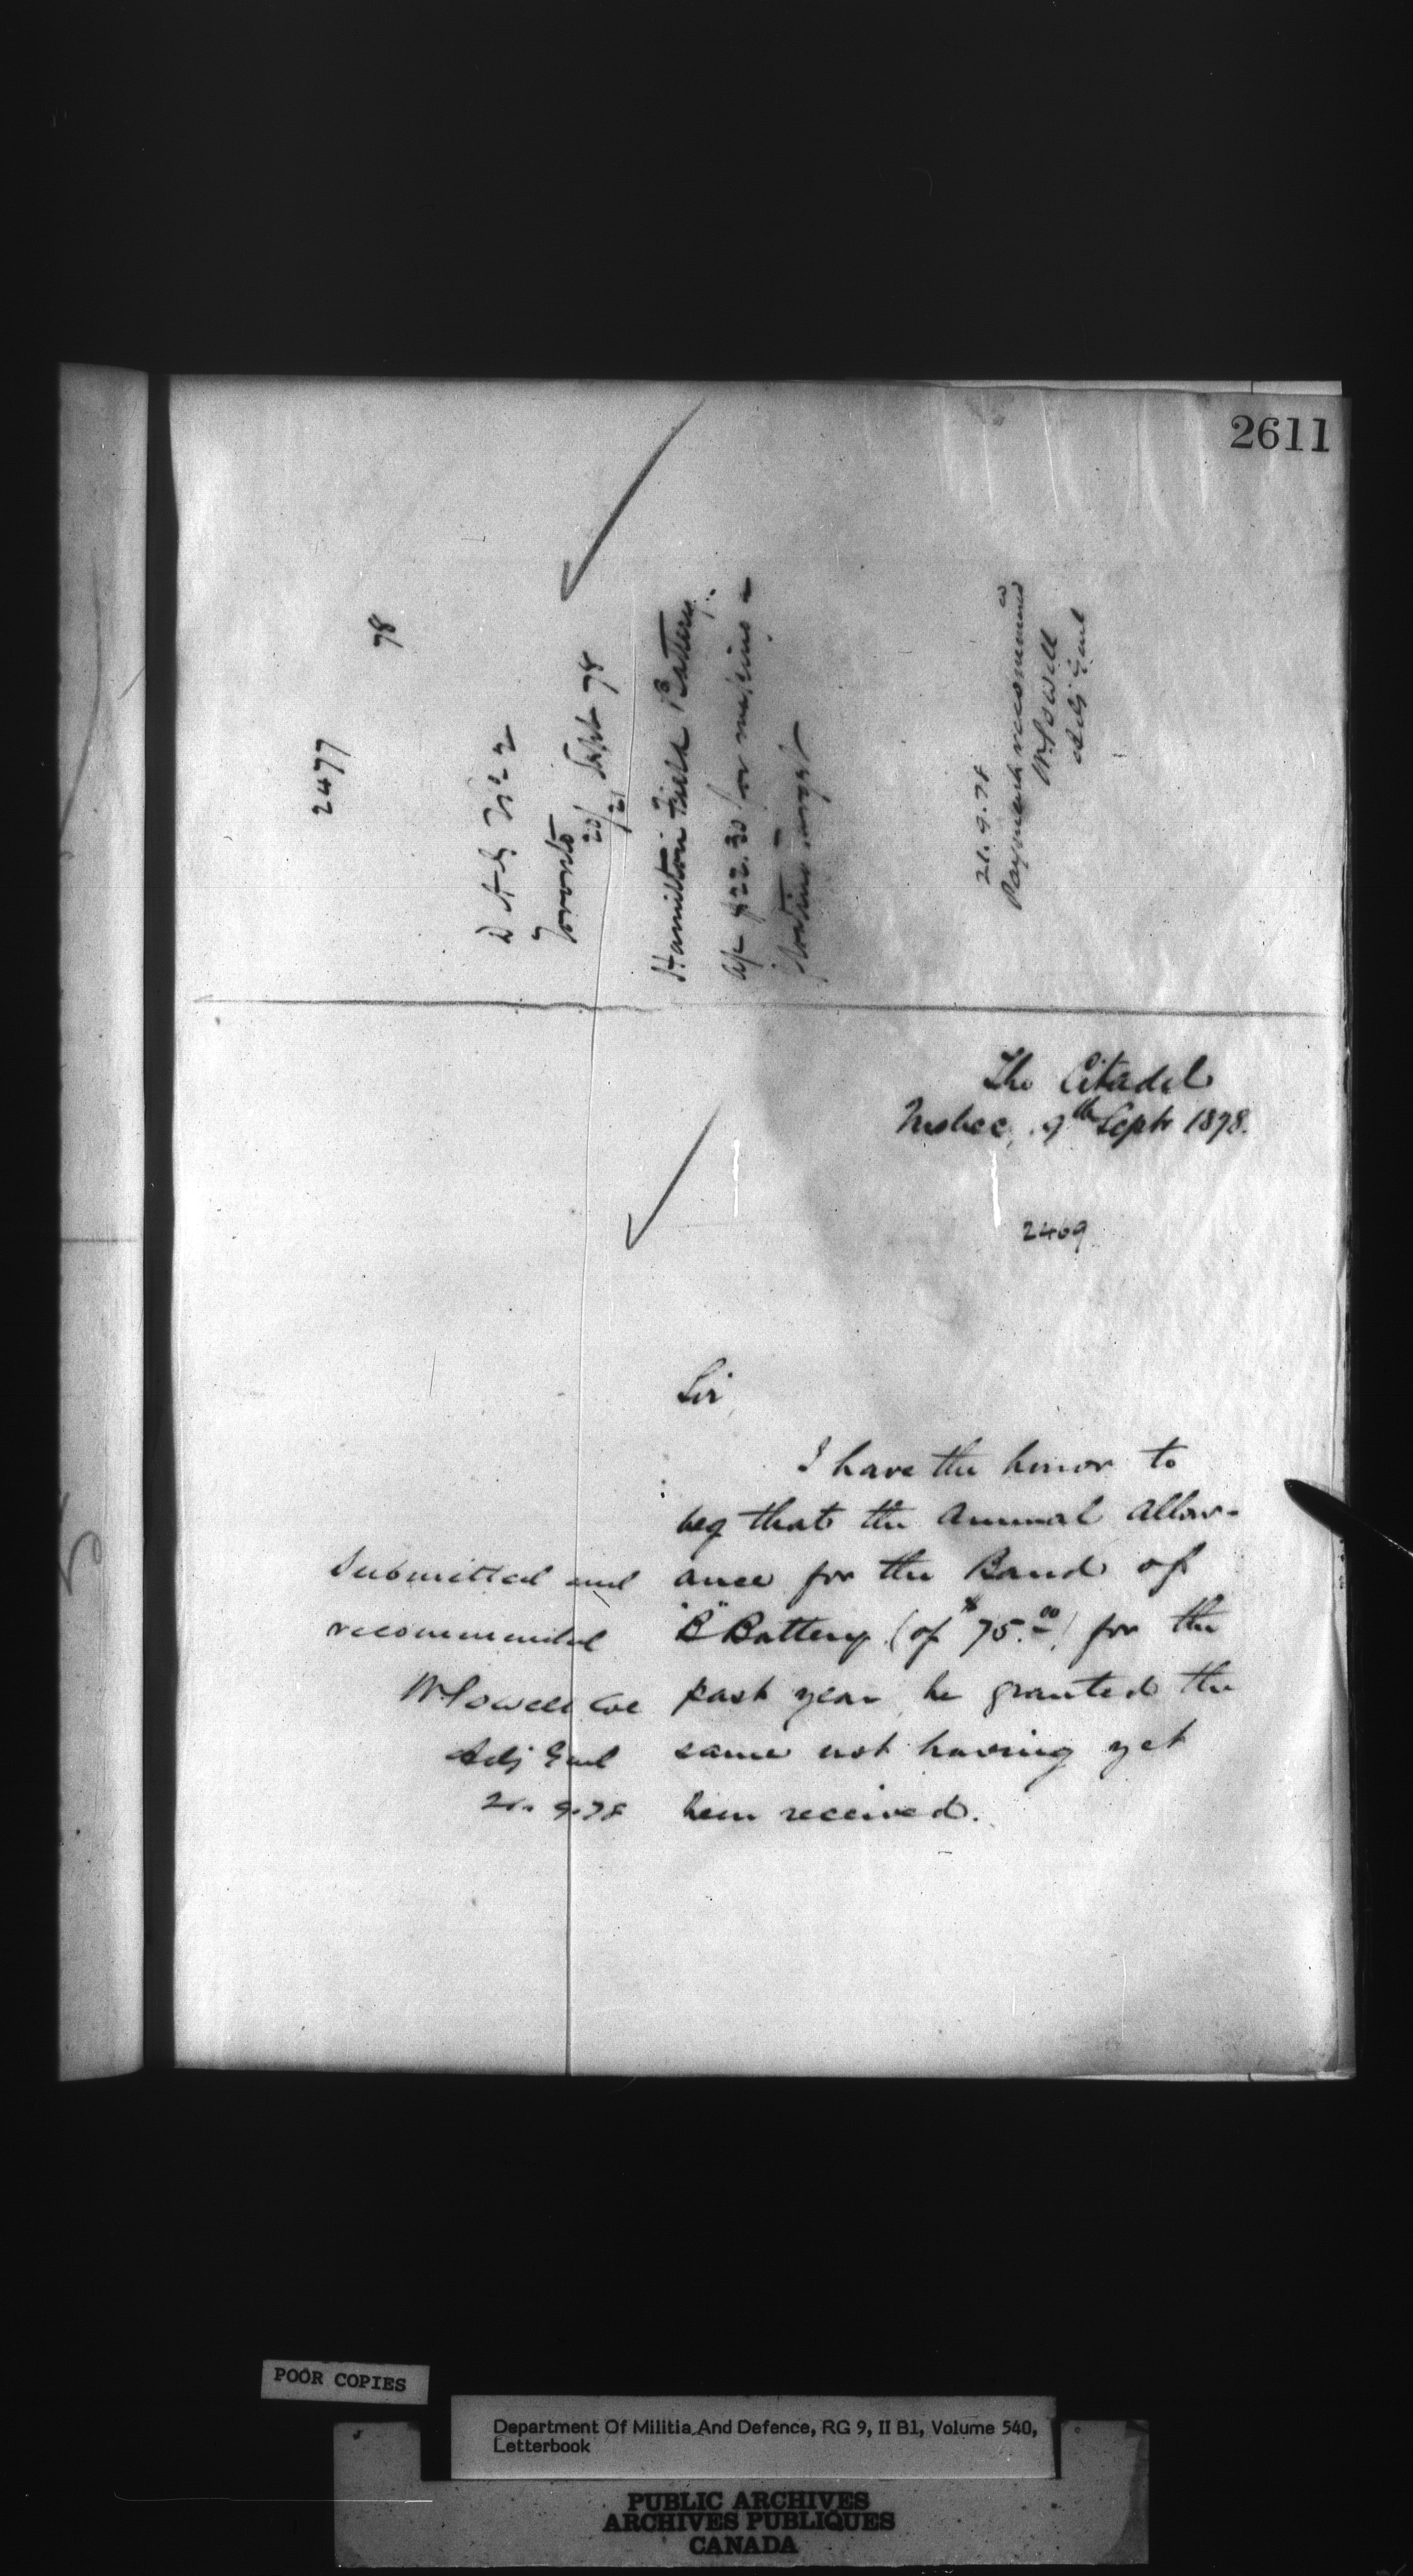 2611
2477
78
D A G No 2
Toronto
20/21 Sept 78
Hamilton Field Battery.
a/c $22.30 for making -
floating target
21.9.78
Payment recommended
W Powell
Adj Genl
The Citadel
Quebec, 9th Sept 1878.
2469
Sir
I have the honor to
beg that the annual allow-
ance for the Band of
"B" Battery (of $75.00) for the
past year be granted the
same not having yet
been received.
Submitted and
recommended
W Powell Col
Adj Genl
21. 9.78
POOR COPIES
Department Of Militia And Defence, RG 9, II B1, Volume 540,
Letterbook
PUBLIC ARCHIVES
ARCHIVES PUBLIQUES
CANADA